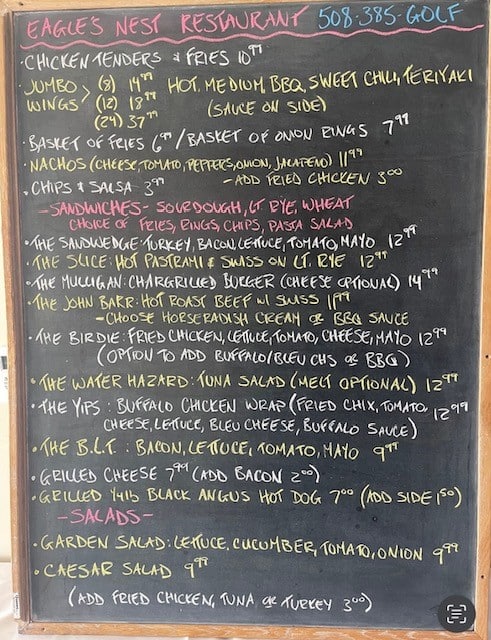 EAGLE'S NEST RESTAURANT 508-385-GOLF
· CHICKEN TENDERS & FRIES 10⁹⁹
· JUMBO WINGS > (8) 14⁹⁹ HOT, MEDIUM, BBQ, SWEET CHILI, TERIYAKI
(12) 18⁹⁹ (SAUCE ON SIDE)
(24) 37⁹⁹
· BASKET OF FRIES 6⁹⁹ / BASKET OF ONION RINGS 7⁹⁹
· NACHOS (CHEESE, TOMATO, PEPPERS, ONION, JALAPEÑO) 11⁹⁹
· CHIPS & SALSA 3⁹⁹ - ADD FRIED CHICKEN 3⁰⁰
- SANDWICHES - SOURDOUGH, LT RYE, WHEAT
CHOICE OF FRIES, RINGS, CHIPS, PASTA SALAD
· THE SANDWEDGE: TURKEY, BACON, LETTUCE, TOMATO, MAYO 12⁹⁹
· THE SLICE: HOT PASTRAMI & SWISS ON LT. RYE 12⁹⁹
· THE MULLIGAN: CHARGRILLED BURGER (CHEESE OPTIONAL) 14⁹⁹
· THE JOHN BARR: HOT ROAST BEEF W/ SWISS 11⁹⁹
- CHOOSE HORSERADISH CREAM OR BBQ SAUCE
· THE BIRDIE: FRIED CHICKEN, LETTUCE, TOMATO, CHEESE, MAYO 12⁹⁹
(OPTION TO ADD BUFFALO/BLEU CHS OR BBQ)
· THE WATER HAZARD: TUNA SALAD (MELT OPTIONAL) 12⁹⁹
· THE YIPS: BUFFALO CHICKEN WRAP (FRIED CHIX, TOMATO, 12⁹⁹
CHEESE, LETTUCE, BLEU CHEESE, BUFFALO SAUCE)
· THE B.L.T: BACON, LETTUCE, TOMATO, MAYO 9⁹⁹
· GRILLED CHEESE 7⁹⁹ (ADD BACON 2⁰⁰)
· GRILLED 1/4 lb BLACK ANGUS HOT DOG 7⁰⁰ (ADD SIDE 1⁵⁰)
- SALADS -
· GARDEN SALAD: LETTUCE, CUCUMBER, TOMATO, ONION 9⁹⁹
· CAESAR SALAD 9⁹⁹
(ADD FRIED CHICKEN, TUNA OR TURKEY 3⁰⁰)